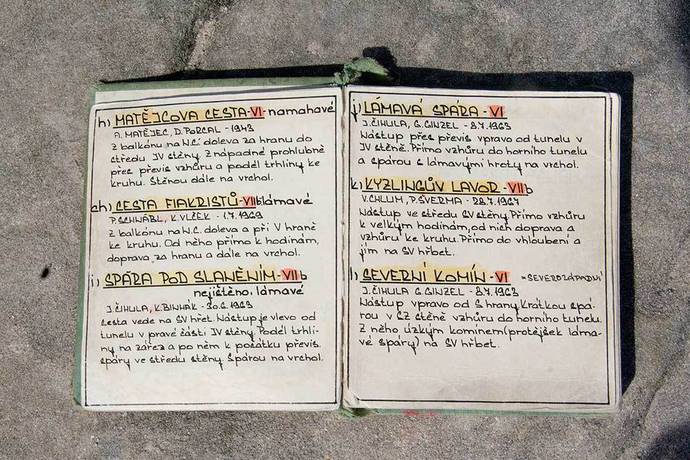 h) MATĚJCOVA CESTA-VI-namahavé
A. MATĚJEC, D. PORCAL - 1943
Z balkónu na N.C. doleva za hranu do
středu JV stěny. Z nápadné prohlubně
přes převis vzhůru a podél trhliny ke
kruhu. Stěnou dále na vrchol.
ch) CESTA FIAKRISTŮ-VIIb lámavé
P. SCHNÁBL, K. VLČEK - 1.7.1969
Z balkónu na N.C. doleva a při V hraně
ke kruhu. Od něho přímo k hodinám,
doprava, za hranu a dále na vrchol.
i) SPÁRA POD SLANĚNÍM-VIIb
nejištěno, lámavé
J. ČIHULA, K. BINHAK - 30.6.1963
Cesta vede na SV hřbet. Nástup je vlevo od
tunelu v pravé části JV stěny. Podél trhli-
ny na zářez a po něm k počátku převis.
spáry ve středu stěny. Spárou na vrchol.
j) LÁMAVÁ SPÁRA-VI
J. ČIHULA, G. GINZEL - 8.7.1963
Nástup přes převis vpravo od tunelu v
JV stěně. Přímo vzhůru do horního tunelu
a spárou s lámavými hroty na vrchol.
k) KYZLINGŮV LAVOR-VIIb
V. CHLUM, P. ŠVERMA - 28.7.1967
Nástup ve středu SV stěny. Přímo vzhůru
k velkým hodinám, od nich doprava a
vzhůru ke kruhu. Přímo do vhloubení a
jím na SV hřbet.
l) SEVERNÍ KOMÍN-VI -SEVEROZÁPADNÍ
J. ČIHULA G. GINZEL - 8.7.1963
Nástup vpravo od S hrany. Krátkou spá-
rou v SZ stěně vzhůru do horního tunelu.
Z něho úzkým komínem (protějšek láma-
vé spáry) na SV hřbet.